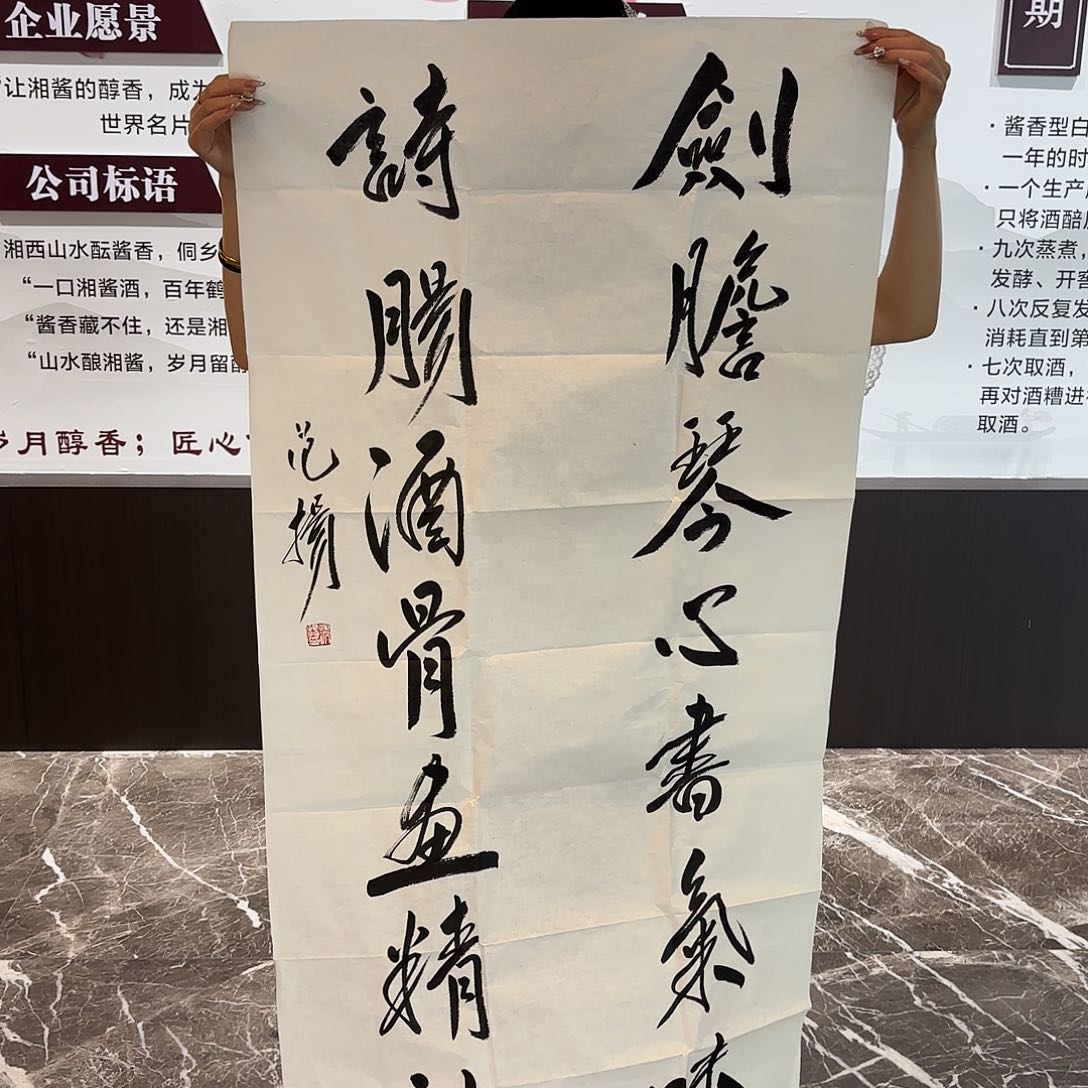 劍膽琴心書氣味
詩腸酒骨畫精神
范揚
企业愿景
“让湘酱的醇香，成为
世界名片
公司标语
湘西山水酝酱香，侗乡
“一口湘酱酒，百年鹤
“酱香藏不住，还是湘
“山水酿湘酱，岁月留
岁月醇香；匠心
期
·酱香型白
一年的时
·一个生产
只将酒醅
·九次蒸煮，
发酵、开窖
·八次反复发
消耗直到第
·七次取酒，
再对酒糟进
取酒。